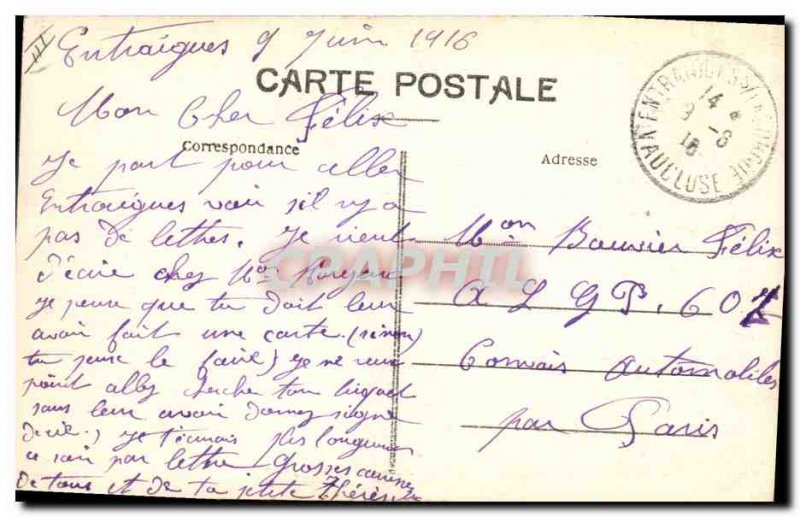 III
Entraigues 9 Juin 1916
CARTE POSTALE
Mon Cher Félix
Correspondance
Adresse
ENTRAIGUES S/ SORGUE
14 *
9 - 6
16
VAUCLUSE
Je part pour aller
Entraigues voir s'il n'y a
pas de lettres. Je vient
d'écrire chez
je pense que tu doit leur
avoir fait une carte. (sinon)
tu peux le faire) je ne veux
point aller cherche ton
sans leur avoir donner signe
de vie.) Je t'
ce soir par lettre Grosses
De tous et de ta petite Thérèse
Mon Bouvier Félix
A L G P. 602
Convois Automobiles
par Paris
CPAPHIL